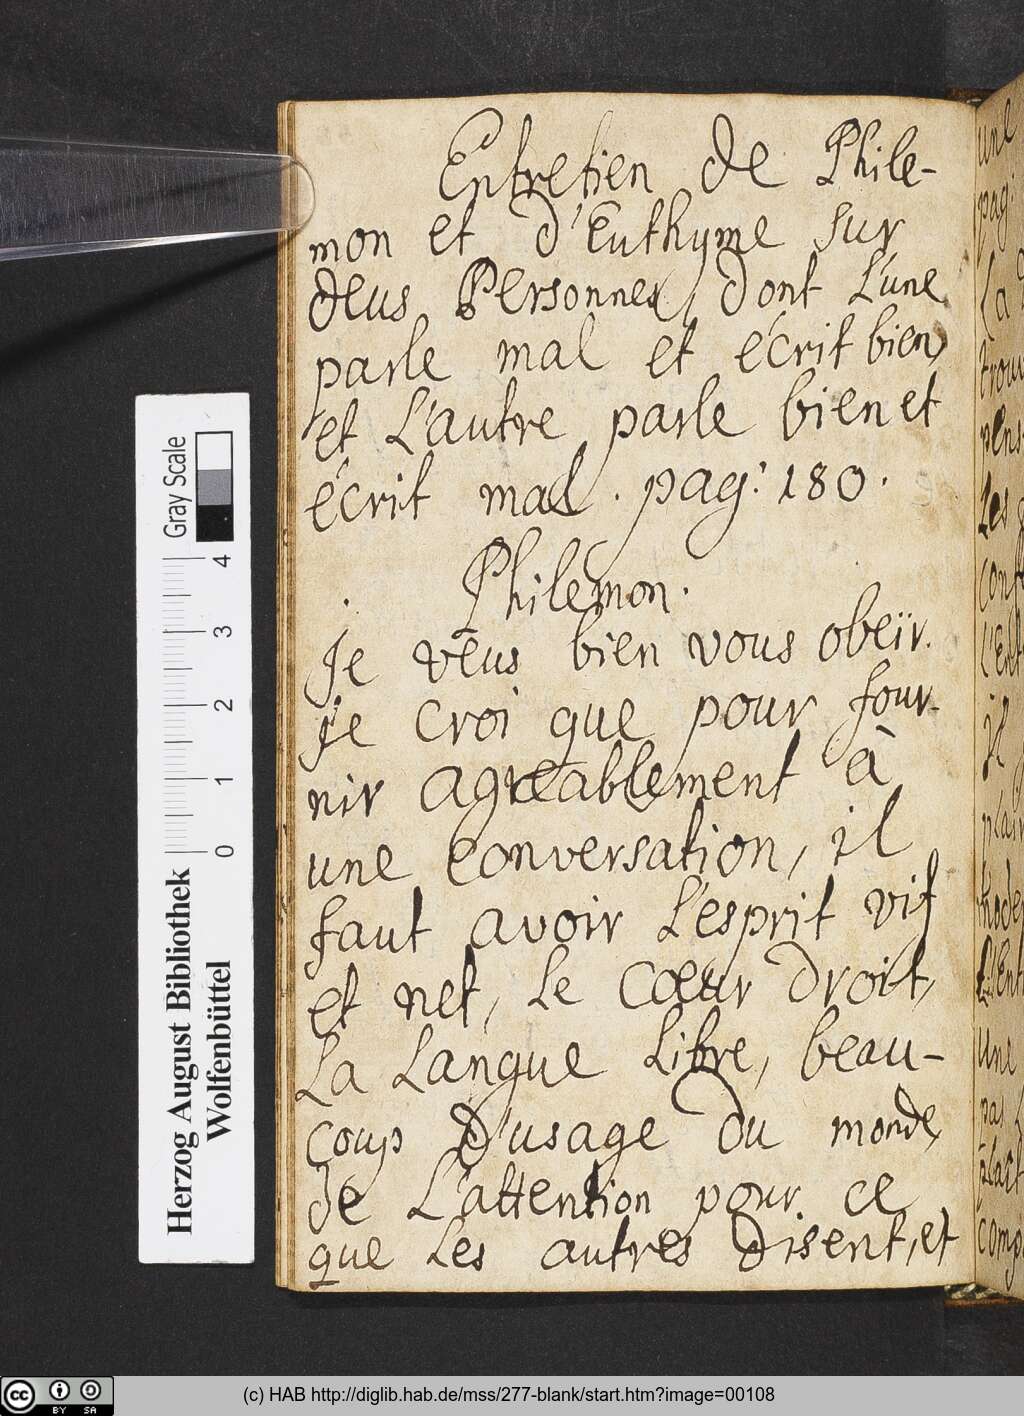 Entretien de Phile-
mon et d'Euthyme sur
deus Personnes, dont l'une
parle mal et écrit bien,
et l'autre parle bien et
écrit mal. pag: 180.
Philémon.
Je veus bien vous obeïr.
je croi que pour four-
nir agreablement à
une conversation, il
faut avoir l'esprit vif
et net, le cœur droit,
la langue libre, beau-
coup d'usage du monde,
de l'attention pour ce
que les autres disent, et
une
pag:
la
les
il
une
Gray Scale
4
3
2
1
0
Herzog August Bibliothek
Wolfenbüttel
cc BY SA
(c) HAB http://diglib.hab.de/mss/277-blank/start.htm?image=00108